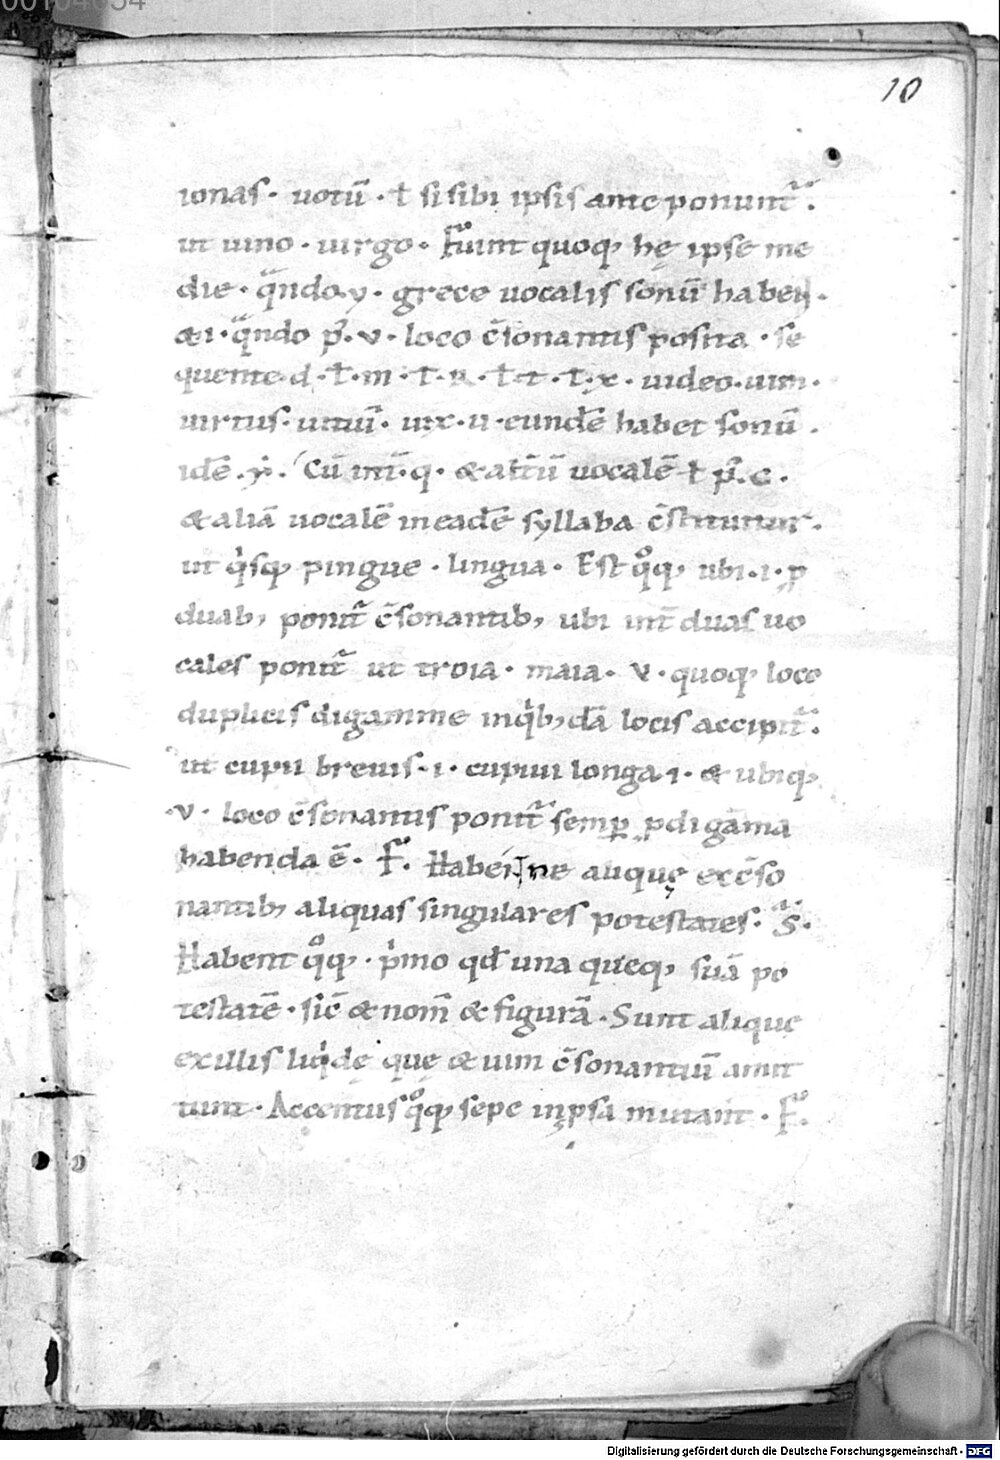 00104654
10
ionas· uotū· ł si sibi ipsis ante ponunt᷑.
ut uino· uirgo· Fiunt quoq; hę ipse me
die· qͣndo·y· grece uocalis sonū haben
&i· qͣndo p̄·v· loco c̄sonantis posita· se
quente d·ł·m·ł·n·ł·t·ł·x· uideo·uim·
uirtus·uitiū·uix·u·eundē habet sonū.
idē·y· Cū int̄·q· & alt̄ū uocalē ł p̄·G·
& aliā uocalē in eadē syllaba c̄stituitur.
ut qͥsq; pingue· lingua· Est qͦq; ubi·i·p
duab; ponit᷑ c̄sonantib; ubi int̄ duas uo
cales ponit᷑ ut troia· maia· V·quoq; loco
duplicis digamme in qͥb;dā locis accipit᷑.
ut cupii breuis·i· cupiui longa·i· & ubiq;
·v· loco c̄sonantis ponit᷑ semp̱ p̱digāma
habenda ē· F̄. Habent ne aliquę ex c̄so
nantib; aliquas singulares potestates· S̄.
Habent qͦq;· pͥmo qd̄ una queq; suā po
testatē· sic̄ & nom̄ & figurā· Sunt aliquę
ex illis liqͥdę quę & uim c̄sonantiū amit
tunt· Accentus qͦq; sepe in p̱sa mutant· F̄.
Digitalisierung gefördert durch die Deutsche Forschungsgemeinschaft - DFG